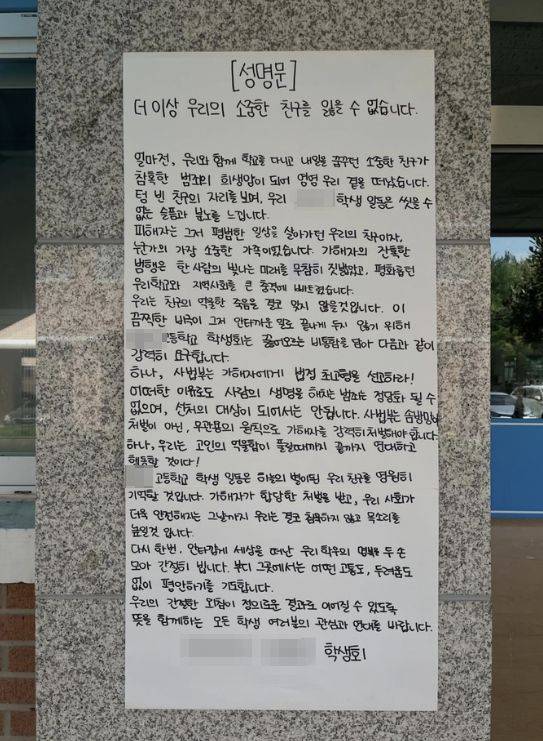 [성명문]
더 이상 우리의 소중한 친구를 잃을 수 없습니다.
얼마전, 우리와 함께 학교를 다니고 내일을 꿈꾸던 소중한 친구가
참혹한 범죄의 희생양이 되어 영영 우리 곁을 떠났습니다.
텅 빈 친구의 자리를 보며, 우리 학생 일동은 씻을 수
없는 슬픔과 분노를 느낍니다.
피해자는 그저 평범한 일상을 살아가던 우리의 친구이자,
누군가의 가장 소중한 가족이었습니다. 가해자의 잔혹한
범행은 한 사람의 빛나는 미래를 무참히 짓밟았고, 평화롭던
우리학교와 지역사회를 큰 충격에 빠트렸습니다.
우리는 친구의 억울한 죽음을 결코 잊지 않을것입니다. 이
끔찍한 비극이 그저 안타까운 일로 끝나게 두지 않기 위해
고등학교 학생회는 끓어오르는 비통함을 담아 다음과 같이
강력히 요구합니다.
하나, 사법부는 가해자에게 법정 최고형을 선고하라!
어떠한 이유로도 사람의 생명을 해치는 범죄는 정당화 될 수
없으며, 선처의 대상이 되어서는 안됩니다. 사법부는 솜방망이
처벌이 아닌, 무관용의 원칙으로 가해자를 강력히 처벌해야 합니다.
하나, 우리는 고인의 억울함이 풀릴때까지 끝까지 연대하고
행동할 것이다!
고등학교 학생 일동은 하늘의 별이된 우리 친구를 영원히
기억할 것입니다. 가해자가 합당한 처벌을 받고, 우리 사회가
더욱 안전해지는 그날까지 우리는 결코 침묵하지 않고 목소리를
높일것 입니다.
다시 한번, 안타깝게 세상을 떠난 우리 학우의 명복을 두 손
모아 간절히 빕니다. 부디 그곳에서는 어떤 고통도, 두려움도
없이 평안하기를 기도합니다.
우리의 간절한 외침이 정의로운 결과로 이어질 수 있도록
뜻을 함께하는 모든 학생 여러분의 관심과 연대를 바랍니다.
학생회